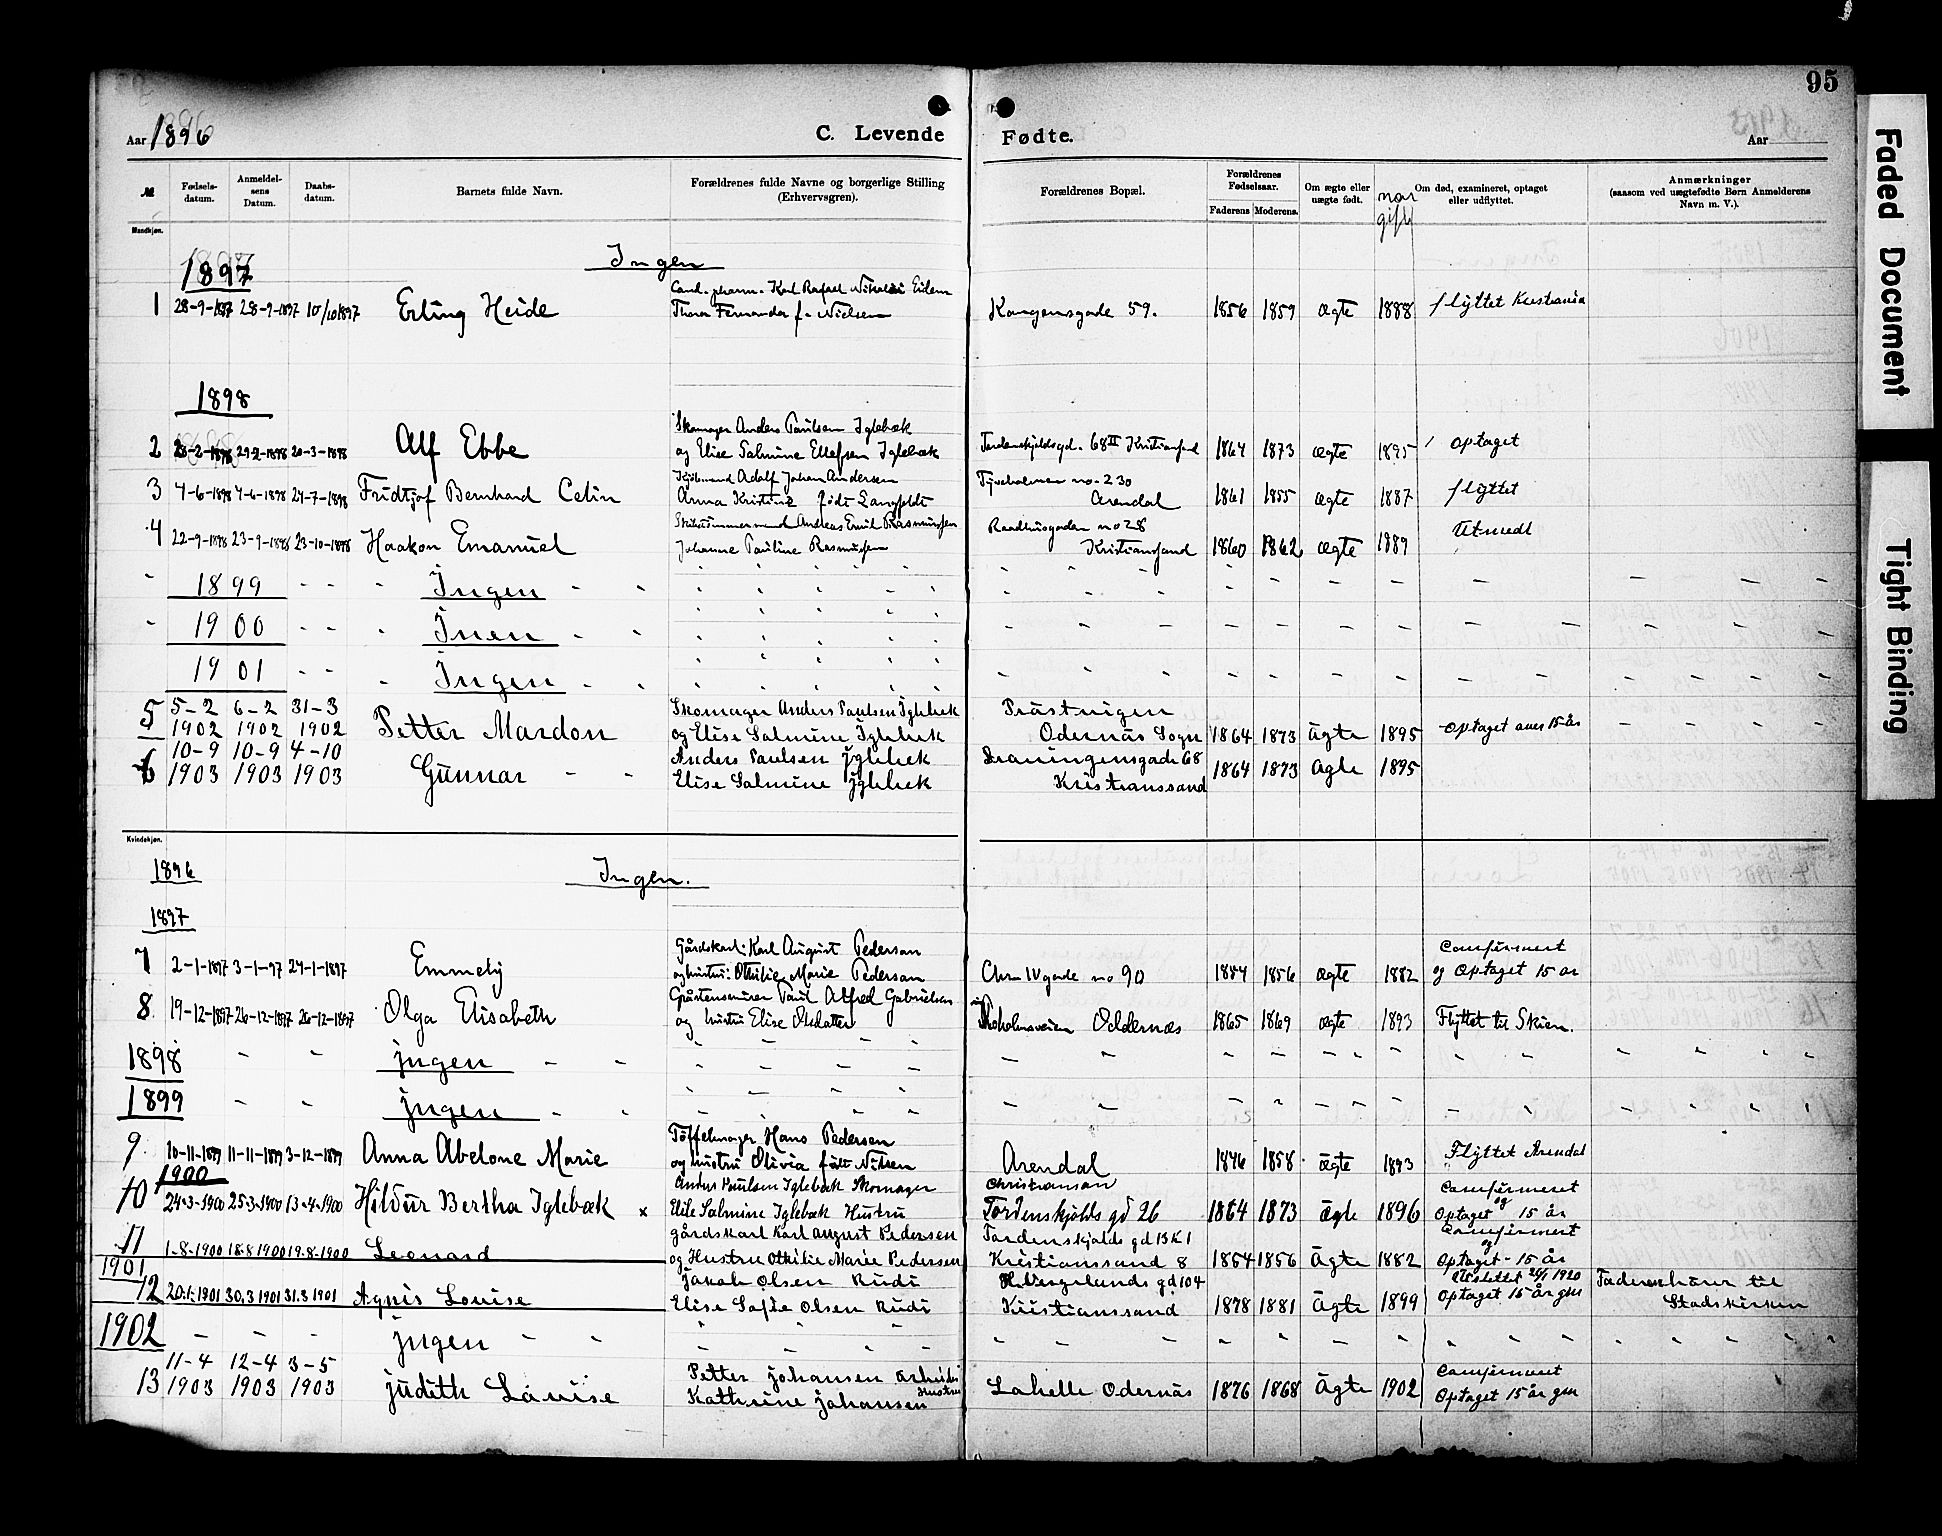 95
Aar 1896
C. Levende Fødte.
Aar
№
Fødsels-datum.
Anmeldel-sens Datum.
Daabs-datum.
Barnets fulde Navn.
Forældrenes fulde Navne og borgerlige Stilling (Erhvervsgren).
Forældrenes Bopæl.
Forældrenes Fødselsaar.
Faderens
Moderens.
Om ægte eller uægte født.
nar gift
Om død, examineret, optaget eller udflyttet.
Anmærkninger (saasom ved uægtefødte Børn Anmelderens Navn m. V.).
Mandkjøn.
Ingen
1897
Cand. pharm. Karl Rafael Nikolai Eidem
1 28-9-1897 28-9-1897 10/10 1897 Erling Heide Thora Fernanda f. Nielsen Kongensgade 59. 1856 1859 ægte 1888 flyttet Kristiania
1898
Skomager Anders Paulsen Iglebæk
2 28-2-1898 29-2-1898 20-3-1898 Alf Ebbe og Elise Salmine Ellefsen Iglebæk Tordenskjoldsgd. 68 II Kristiansand 1864 1873 ægte 1895 optaget
Kjøbmand Adolf Johan Andersen Tyveholmen no. 230
3 4-6-1898 4-6-1898 24-7-1898 Fridtjof Bernhard Celin Anna Kristine født Langfeldt Arendal 1861 1855 ægte 1887 flyttet
Skibstimmermand Andreas Emil Rasmussen Raadhusgaden no 28 Utmedt
4 22-9-1898 23-9-1898 23-10-1898 Haakon Emanuel Johanne Pauline Rasmussen Kristiansand 1860 1862 ægte 1889
1899 Ingen
1900 Inen
1901 Ingen
5 5-2 6-2 31-3 Skomager Anders Paulsen Iglebek Præstvigen
1902 1902 1902 Petter Mardon og Elise Salmine Iglebek Odernæs Sogn 1864 1873 Ägte 1895 optaget over 15 år
10-9 10-9 4-10 Anders Paulsen Iglebek Dronningensgade 68
6 1903 1903 1903 Gunnar Elise Salmine Iglebek Kristianssand 1864 1873 Ägte 1895
Kvindekjøn.
1896 Ingen.
1897
Gårdskarl: Karl August Pedersen Comfirmert
7 2-1-1897 3-1-97 24-1-1897 Emmely og hustru: Othilie Marie Pedersen Chr. IV gade no 90 1854 1856 ægte 1882 og Optaget 15 ar
8 19-12-1897 26-12-1897 26-12-1897 Olga Elisabeth Gråstensmurer Paul Alfred Gabrielsen
og hustru Elise Olsdatter Oddernæs 1865 1869 ægte 1893 Flyttet til Skien.
1898 jngen
1899 jngen
Töffelmager Hans Pedersen
9. 10-11-1899 11-11-1899 3-12-1899 Anna Abelone Marie og hustru Olivia født Nilsen Arendal 1846 1858 ägte 1893 Flyttet Arendal
1900
Anders Poulsen Iglebæk Skomager Christiansan Comfirmeret og
10 24-3-1900 25-3-1900 13-4-1900 Hildur Bertha Iglebæk x Elise Salmine Iglebæk Hustru Tordenskjolds gd 26 1864 1873 ægte 1896 Optaget 15 år
gårdskarl Karl August Pedersen Tordenskjolds gd 13 K 1 Comfirmert og
11 1-8-1900 18-8 1900 19-8-1900 Leonard og Hustru Othilie Marie Pedersen Kristianssand 8 1854 1856 Ägte 1882 Optaget - 15 år
1901 Jakob Olsen Rudi H. Wergelands gd 104 Utslettet 24/1 1920 Faderen hörer til
12 20.1.1901 30.3 1901 31.3 1901 Agnis Lovise Elise Sofie Olsen Rudi Kristianssand 1878 1881 Ägte 1899 Optaget 15 år gm Stadskirken
1902 jngen
11-4 12-4 3-5 Petter Johansen arbeider Comfirmert
13 1903 1903 1903 judith Lovise Kathrine Johansen Hustru Lahelle Odernæs 1876 1868 Ägte 1902 Optaget 15 år gm
Faded Document
Tight Binding